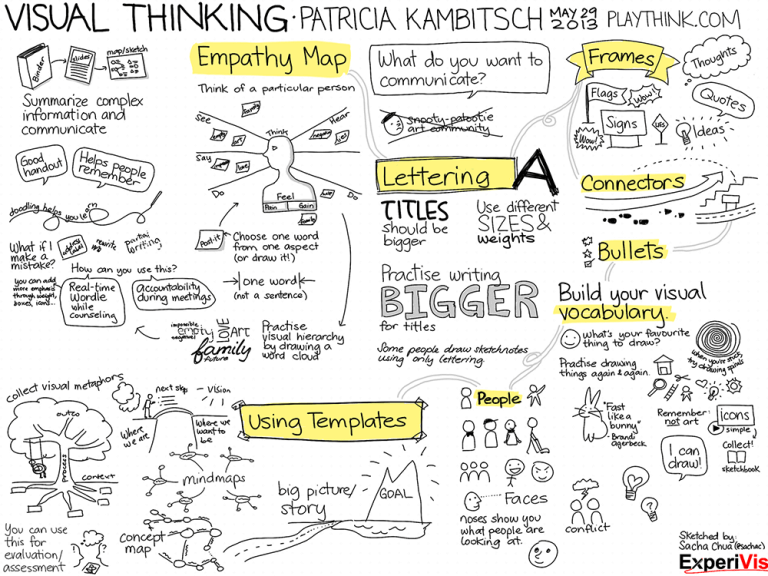 VISUAL THINKING · PATRICIA KAMBITSCH MAY 29 2013 PLAYTHINK.COM
Binder
slides
map/sketch
Summarize complex
information and
communicate
Good
handout
Helps people
remember
doodling helps you learn
What if I
make a
mistake?
address
labels
rewrite
partial
writing,
you can add
more emphasis
through weight,
boxes, icons...
How can you use this?
Real-time
Wordle
while
counseling
Accountability
during meetings
Empathy Map
Think of a particular person
See
Think
Hear
Say
Do
Do
Feel
Pain
Gain
Post-it
Choose one word
from one aspect
(or draw it!)
one word
(not a sentence)
impossible
empty
negatives
LOVE
ART
family
future
Practise
visual hierarchy
by drawing a
word cloud
What do you want to
communicate?
snooty-patootie
art community
Lettering A
TITLES
should be
bigger
Use different
SIZES &
weights
Practise writing
BIGGER
for titles
Some people draw sketchnotes
using only lettering.
Frames
Thoughts
Flags
Wow!
Quotes
Wow!
Signs
YES
Ideas
Connectors
Bullets
Build your visual
vocabulary.
what's your favourite
thing to draw?
when you're stuck,
try drawing spirals
Practise drawing
things again & again.
"Fast
like a
bunny"
- Brandy
Agerbeck
Remember:
not art
icons
simple
Collect!
sketchbook
I can
draw!
conflict
People
Faces
noses show you
what people are
looking at.
Using Templates
collect visual metaphors
outco
process
context
You can use
this for
evaluation/
assessment
next step
VISION
Where
we are
Where we
want to
be
mindmaps
concept
map
big picture/
story
GOAL
Sketched by:
Sacha Chua (@sachac)
ExperiVis